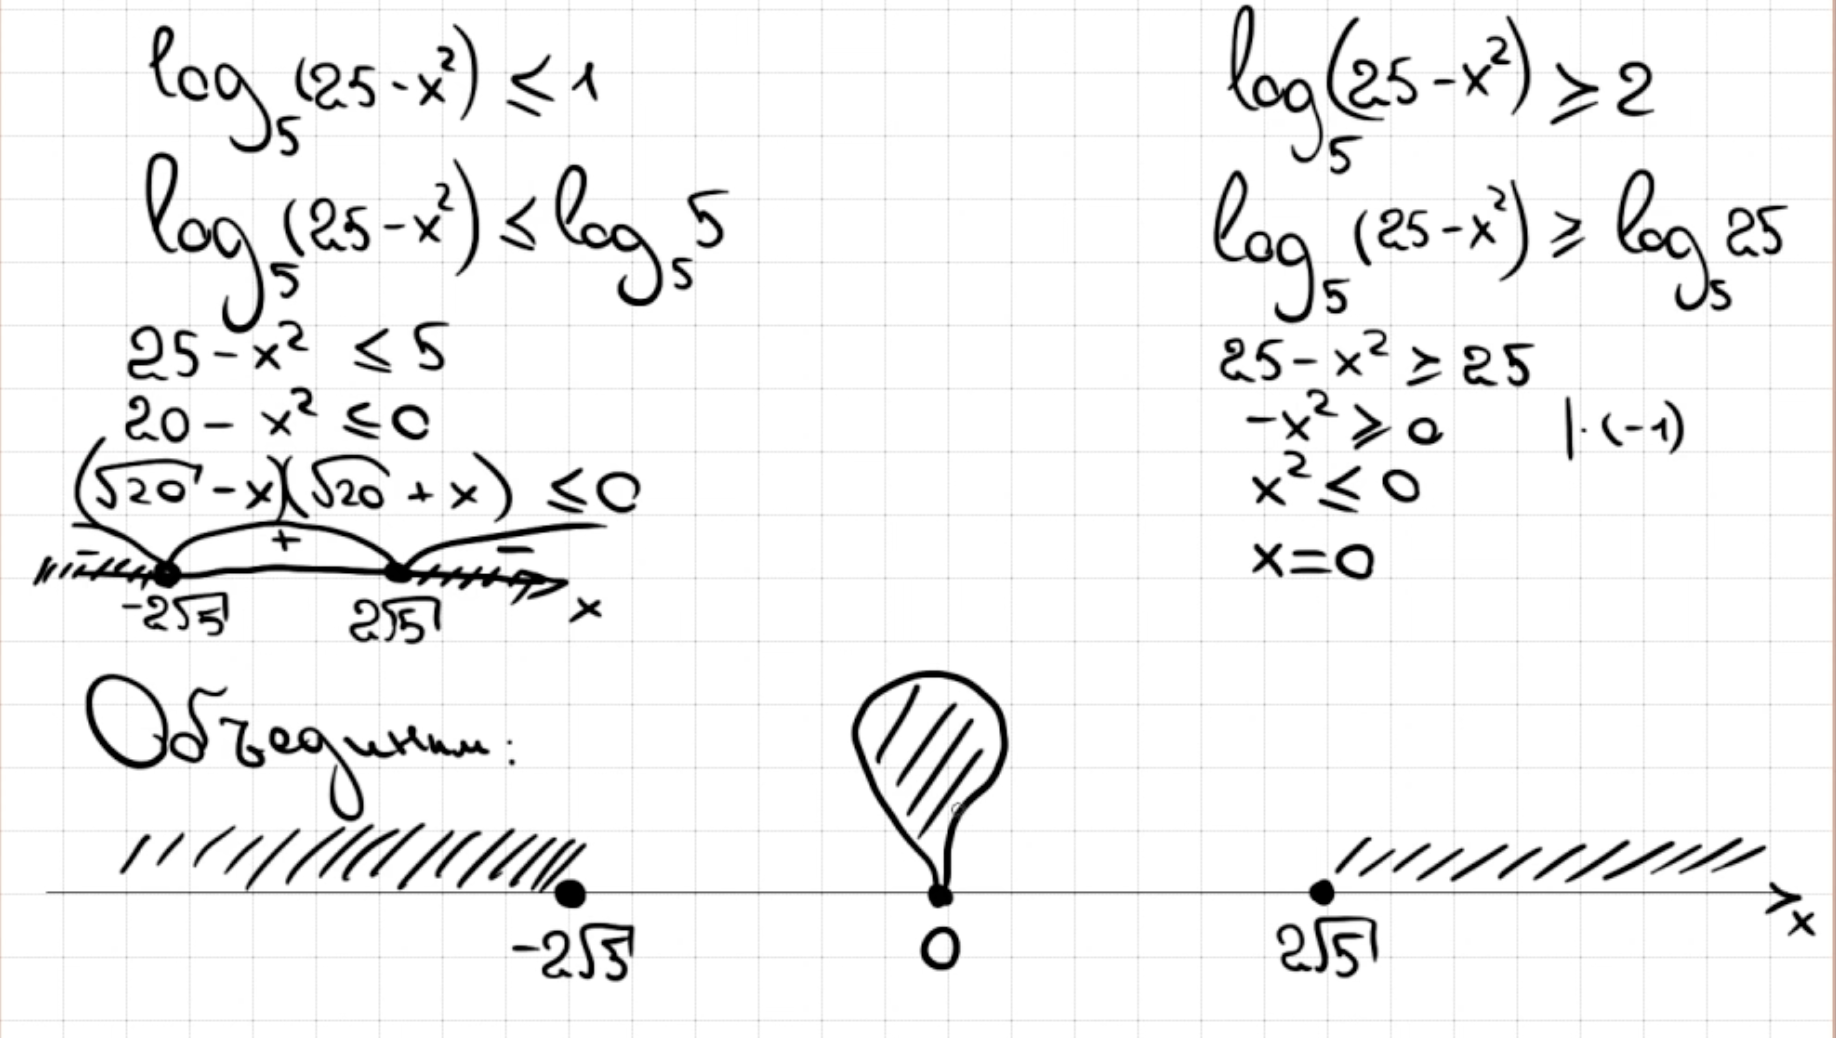 log₅(25-x²) ≤ 1
log₅(25-x²) ≤ log₅5
25-x² ≤ 5
20- x² ≤ 0
(√20 - x)(√20 + x) ≤ 0
- + -
-2√5 2√5 x
log₅(25-x²) ≥ 2
log₅(25-x²) ≥ log₅25
25-x² ≥ 25
-x² ≥ 0 |·(-1)
x² ≤ 0
x=0
Объединим:
-2√5 0 2√5 x